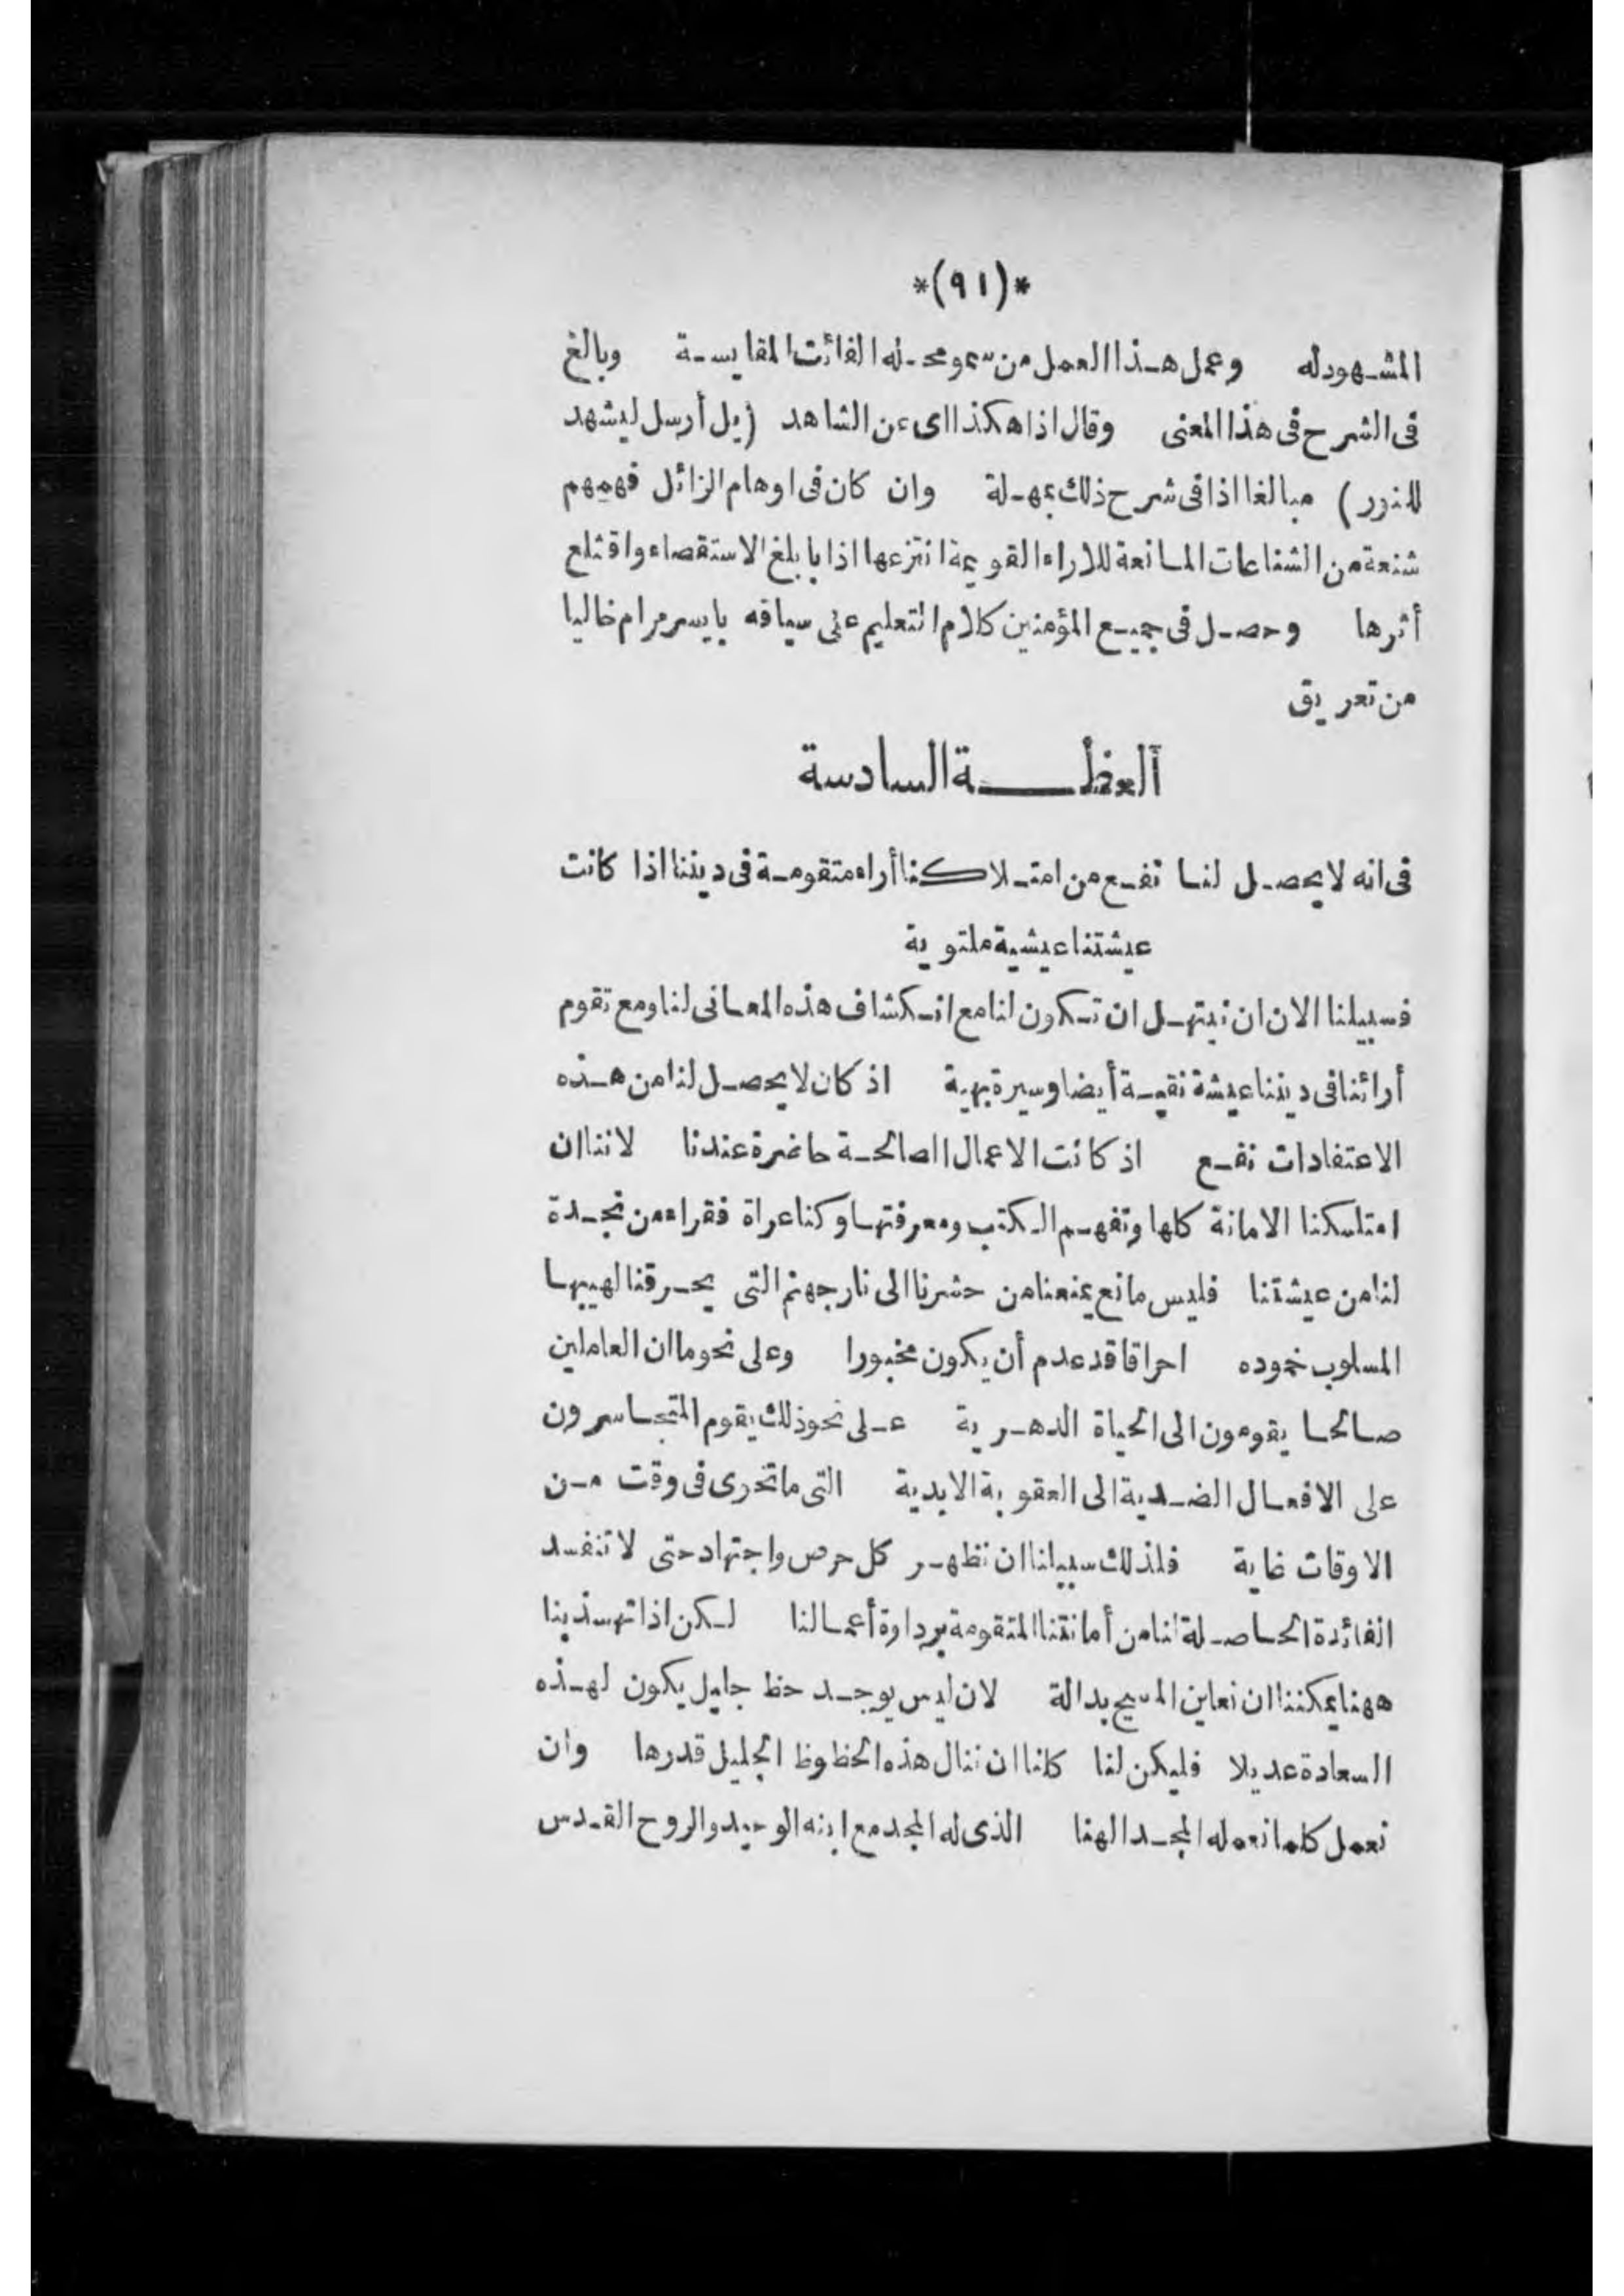 *(٩١)*
المشهود له وعمل هذا العمل من سمو محله الفائت المقايسة وبالغ
فى الشرح فى هذا المعنى وقال اذا هكذا اى عن الشاهد (بل أرسل ليشهد
للنور) مبالغا اذا فى شرح ذلك بمهلة وان كان فى اوهام الزائل فهمهم
شنعة من الشناعات المانعة للاراء القويمة انتزعها اذا بابلغ الاستقصاء واقتلع
أثرها وحصل فى جميع المؤمنين كلام التعليم على سياقه بايسر مرام خاليا
من تعريق
ألعظة السادسة
فى انه لا يحصل لنا نفع من امتلاكنا أراء متقومة فى ديننا اذا كانت
عيشتنا عيشية ملتوية
فسبيلنا الان ان نبتهل ان تكون لنا مع انكشاف هذه المعانى لنا ومع تقوم
أرائنا فى ديننا عيشة نقية أيضا وسيرة بهية اذ كان لا يحصل لنا من هذه
الاعتقادات نفع اذ كانت الاعمال الصالحة حاضرة عندنا لاننا ان
امتلكنا الامانة كلها وتفهم الكتب ومعرفتها وكنا عراة فقراء من نجدة
لنا من عيشتنا فليس مانع يمنعنا من حشرنا الى نار جهنم التى يحرقنا لهيبها
المسلوب خموده احراقا قد عدم أن يكون مخبورا وعلى نحو ما ان العاملين
صالحا يقومون الى الحياة الدهرية على نحو ذلك يقوم المتجاسرون
على الافعال الضدية الى العقوبة الابدية التى ما تحرى فى وقت من
الاوقات غاية فلذلك سبيلنا ان نظهر كل حرص واجتهاد حتى لا تنفسد
الفائدة الحاصلة لنا من أمانتنا المتقومة برداوة أعمالنا لكن اذا تهذبنا
ههنا يمكننا ان نعاين المسيح بدالة لان ليس يوجد حظ جليل يكون لهذه
السعادة عديلا فليكن لنا كلنا ان ننال هذه الحظوظ الجليل قدرها وان
نعمل كلما نعمله لمجد الهنا الذى له المجد مع ابنه الوحيد والروح القدس